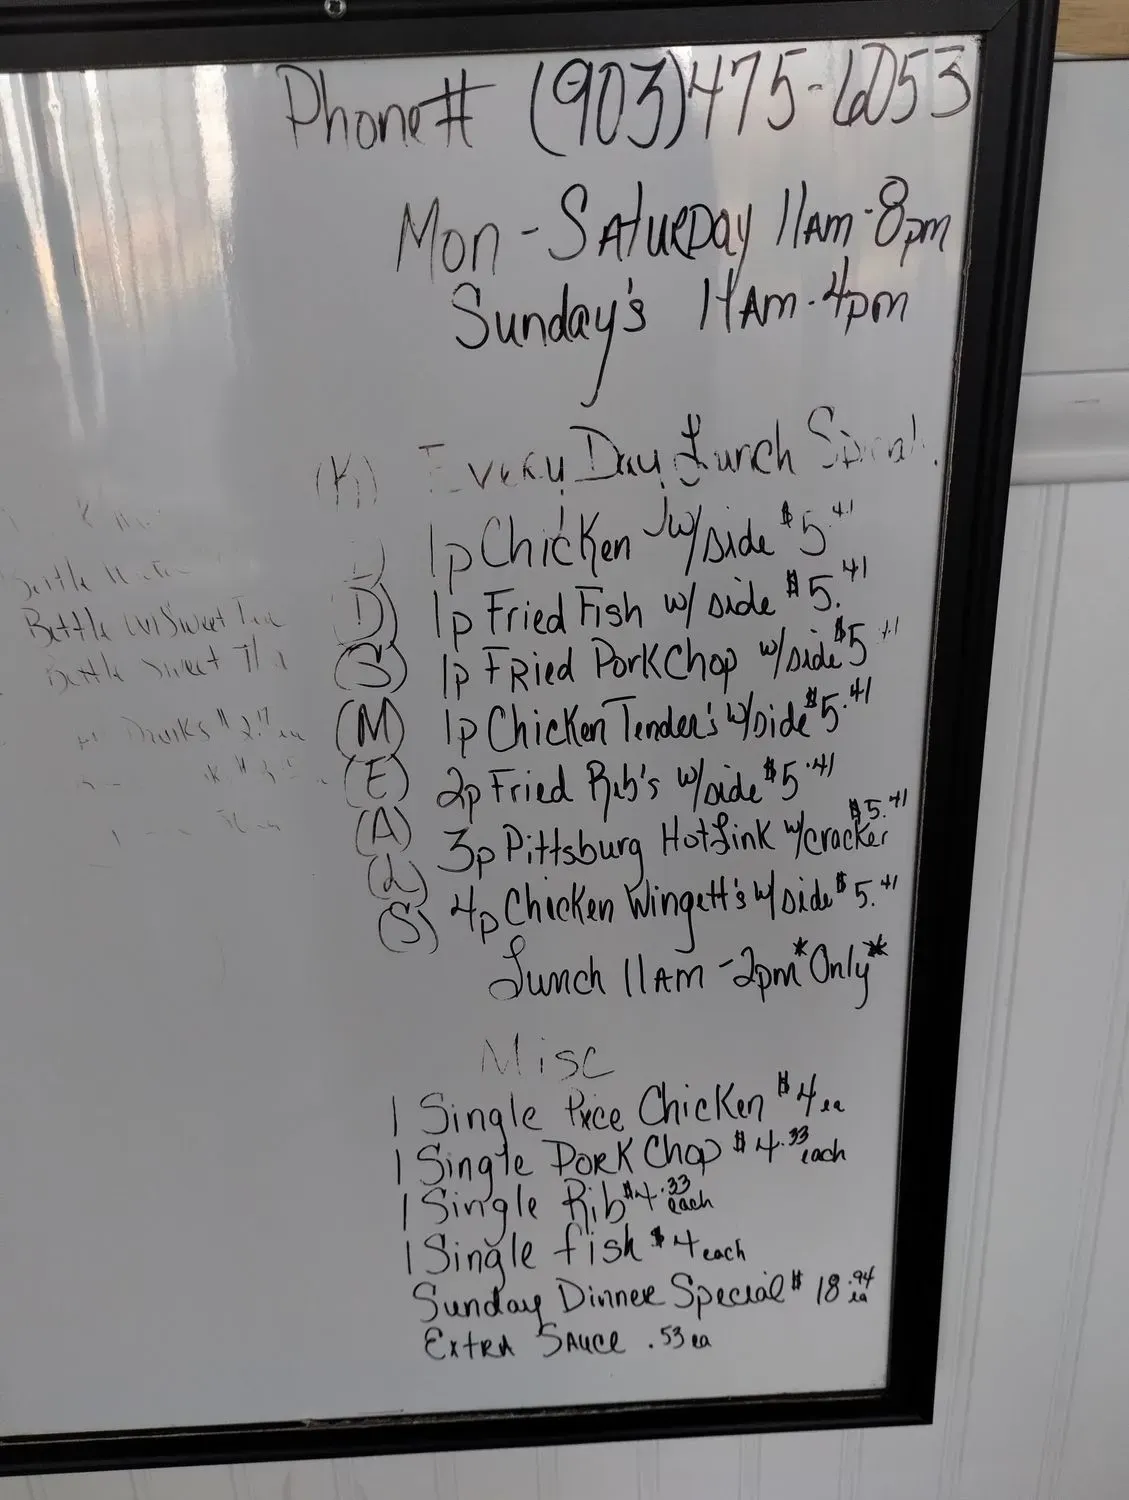 Phone# (903)475-6053
Mon-Saturday 11am-8pm
Sunday's 11Am-4pm
(K) Every Day Lunch Special
1p Chicken w/side $5.41
(D) 1p Fried Fish w/ side $5.41
(S) 1p Fried PorkChop w/side $5.41
(M) 1p Chicken Tender's w/side $5.41
(E) 2p Fried Rib's w/side $5.41
(A) 3p Pittsburg HotLink w/cracker $5.41
(L) 4p Chicken Wingett's w/side $5.41
(S)
Lunch 11AM-2pm *Only*
Bottle
Bottle Sweet Tea
Bottle Sweet
Drinks $2.17 ea
Misc
1 Single Piece Chicken $4 ea
1 Single Pork Chop $4.33 each
1 Single Rib $4.33 each
1 Single fish $4 each
Sunday Dinner Special $18.94 ea
Extra Sauce .53 ea